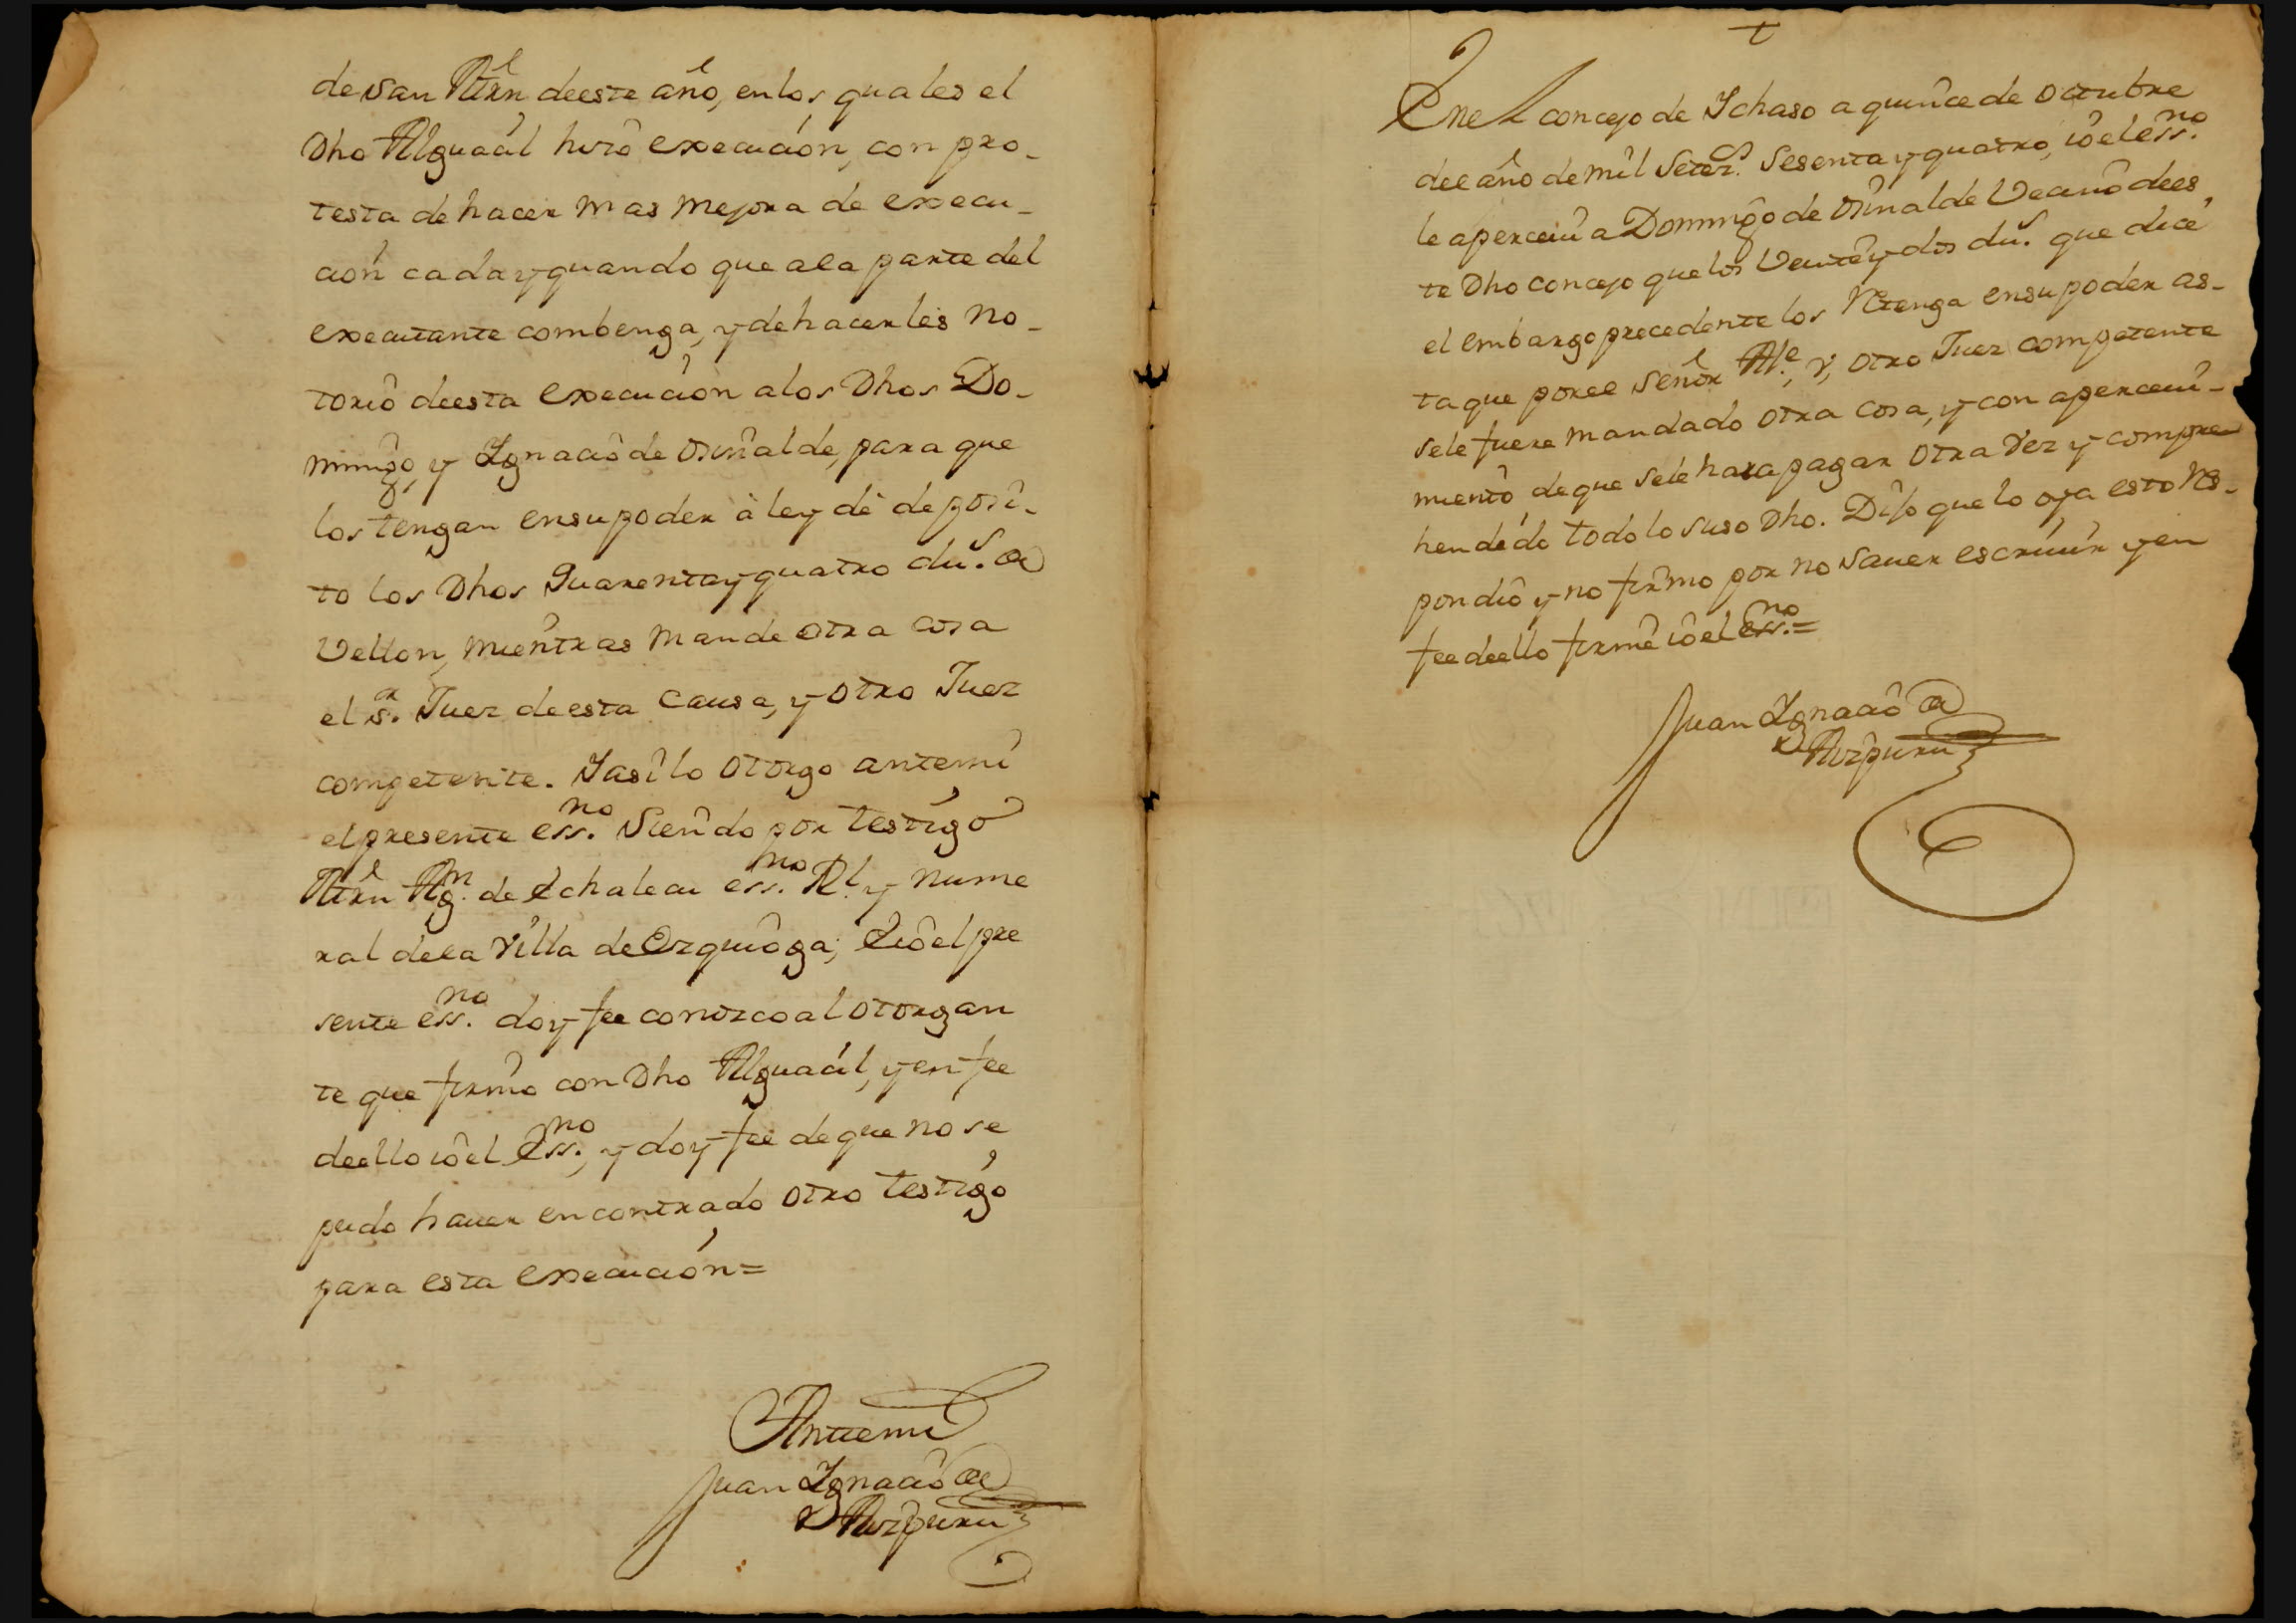 de San Mrñ de este año, en los quales el
Dho Alguacil hizo execucion, con pro-
testa de hacer mas mejora de execu-
cion cada y quando que a la parte del
executante combenga, y de hacerles no-
torio de esta execucion a los Dhos Do-
mingo, y Ygnacio de Oruñalde, para que
los tengan en su poder à ley de deposi-
to los Dhos Quarenta y quatro du.s de
Vellon, mientras mande otra cosa
el s.r Juez de esta causa, y otro Juez
competente. Y asi lo otorgo ante mi
el presente ess.no siendo por testigo
Mrñ Ag.n de Echalecu ess.no R.l y nume
ral de la Villa de Ezquioga; E io el pre
sente ess.no doy fee conozco al otorgan
te que firmo con Dho Alguacil, y en fee
de ello io el Ess.no, y doy fee de que no se
pudo hauer encontrado otro testigo
para esta execucion=
Ante mi
Juan Ygnacio de
Aizpuru
t
En el concejo de Ychaso a quince de octubre
del año de mil setez.s sesenta y quatro, io el ess.no
le aperceui a Domingo de Oruñalde Vecino de es
te Dho concejo que los Veinte y dos du.s que dice
el embargo precedente los Retenga en su poder as-
ta que por el señor Al.e, y, otro Juez competente
se le fuere mandado otra cosa, y con aperceui-
miento de que se le hara pagar otra vez y compre
hendido todo lo suso Dho. Dijo que lo oya esto Res-
pondio y no firmo por no sauer escriuir y en
fee de ello firmè io el ess.no=
Juan Ygnacio de
Aizpuru